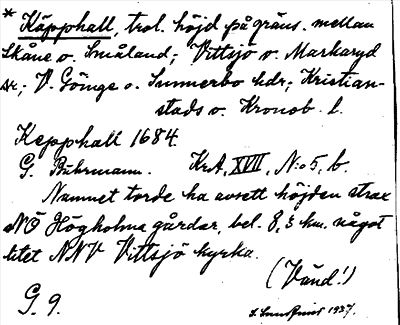 * Käpphall, trol. höjd på gräns. mellan
Skåne o. Småland; Vittsjö o. Markaryd
sr; V. Göinge o. Sunnerbo hdr; Kristian-
stads o. Kronob. l.
Kepphall 1684.
G. Buhrmann. KrA, XVII, N:o 5, b.
Namnet torde ha avsett höjden strax
NÖ Högholma gårdar, bel. 8,5 km. något
litet NNV Vittsjö kyrka.
(Vänd!)
G. 9. 1937.